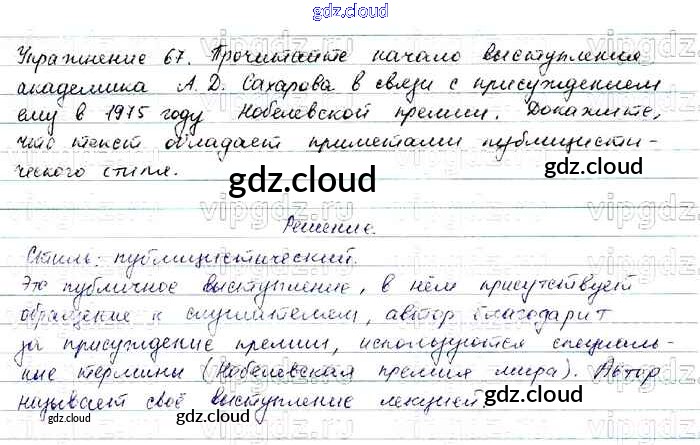 gdz.cloud
Упражнение 67. Прочитайте начало выступления
академика А. Д. Сахарова в связи с присуждением
ему в 1975 году Нобелевской премии. Докажите,
что текст обладает приметами публицисти-
ческого стиля.
gdz.cloud gdz.cloud
Решение.
Стиль: публицистический.
Это публичное выступление, в нём присутствует
обращение к слушателем, автор благодарит
за присуждение премии, используются специаль-
ные термины (Нобелевская премия мира). Автор
называет своё выступление лекцией.
gdz.cloud gdz.cloud gdz.cloud